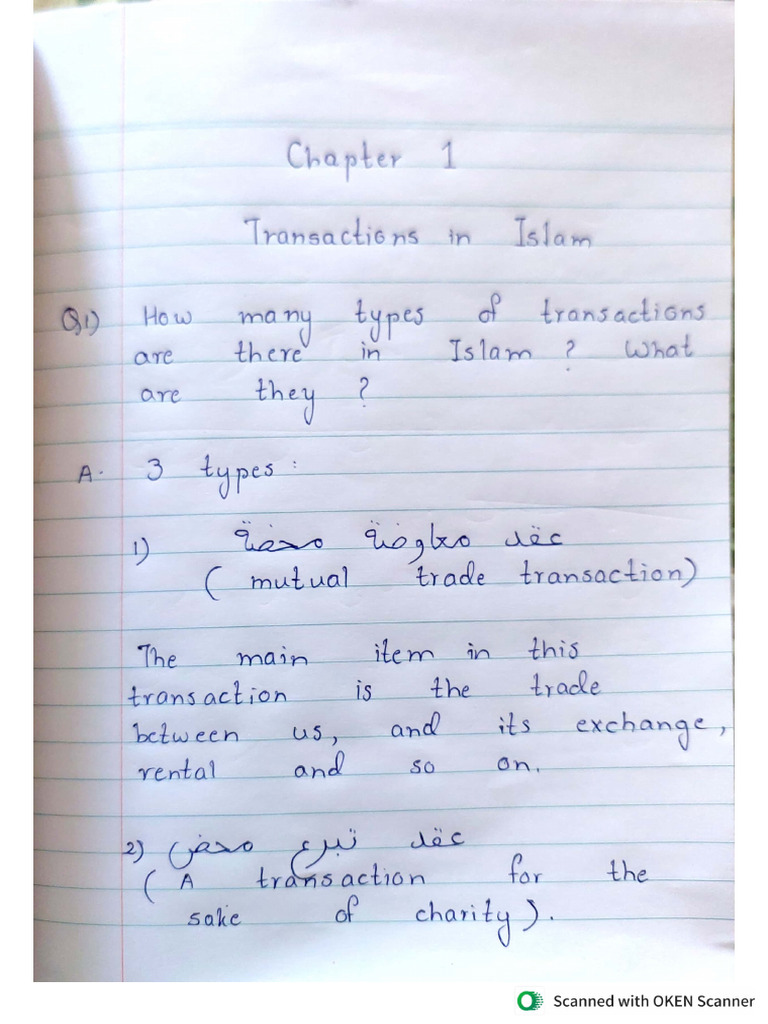 Chapter 1
Transactions in Islam
Q1) How many types of transactions
are there in Islam ? What
are they ?
A. 3 types :
1) عقد معاوضة محضة
( mutual trade transaction)
The main item in this
transaction is the trade
between us, and its exchange,
rental and so on.
2) عقد تبرع محض
( A transaction for the
sake of charity ).
Scanned with OKEN Scanner